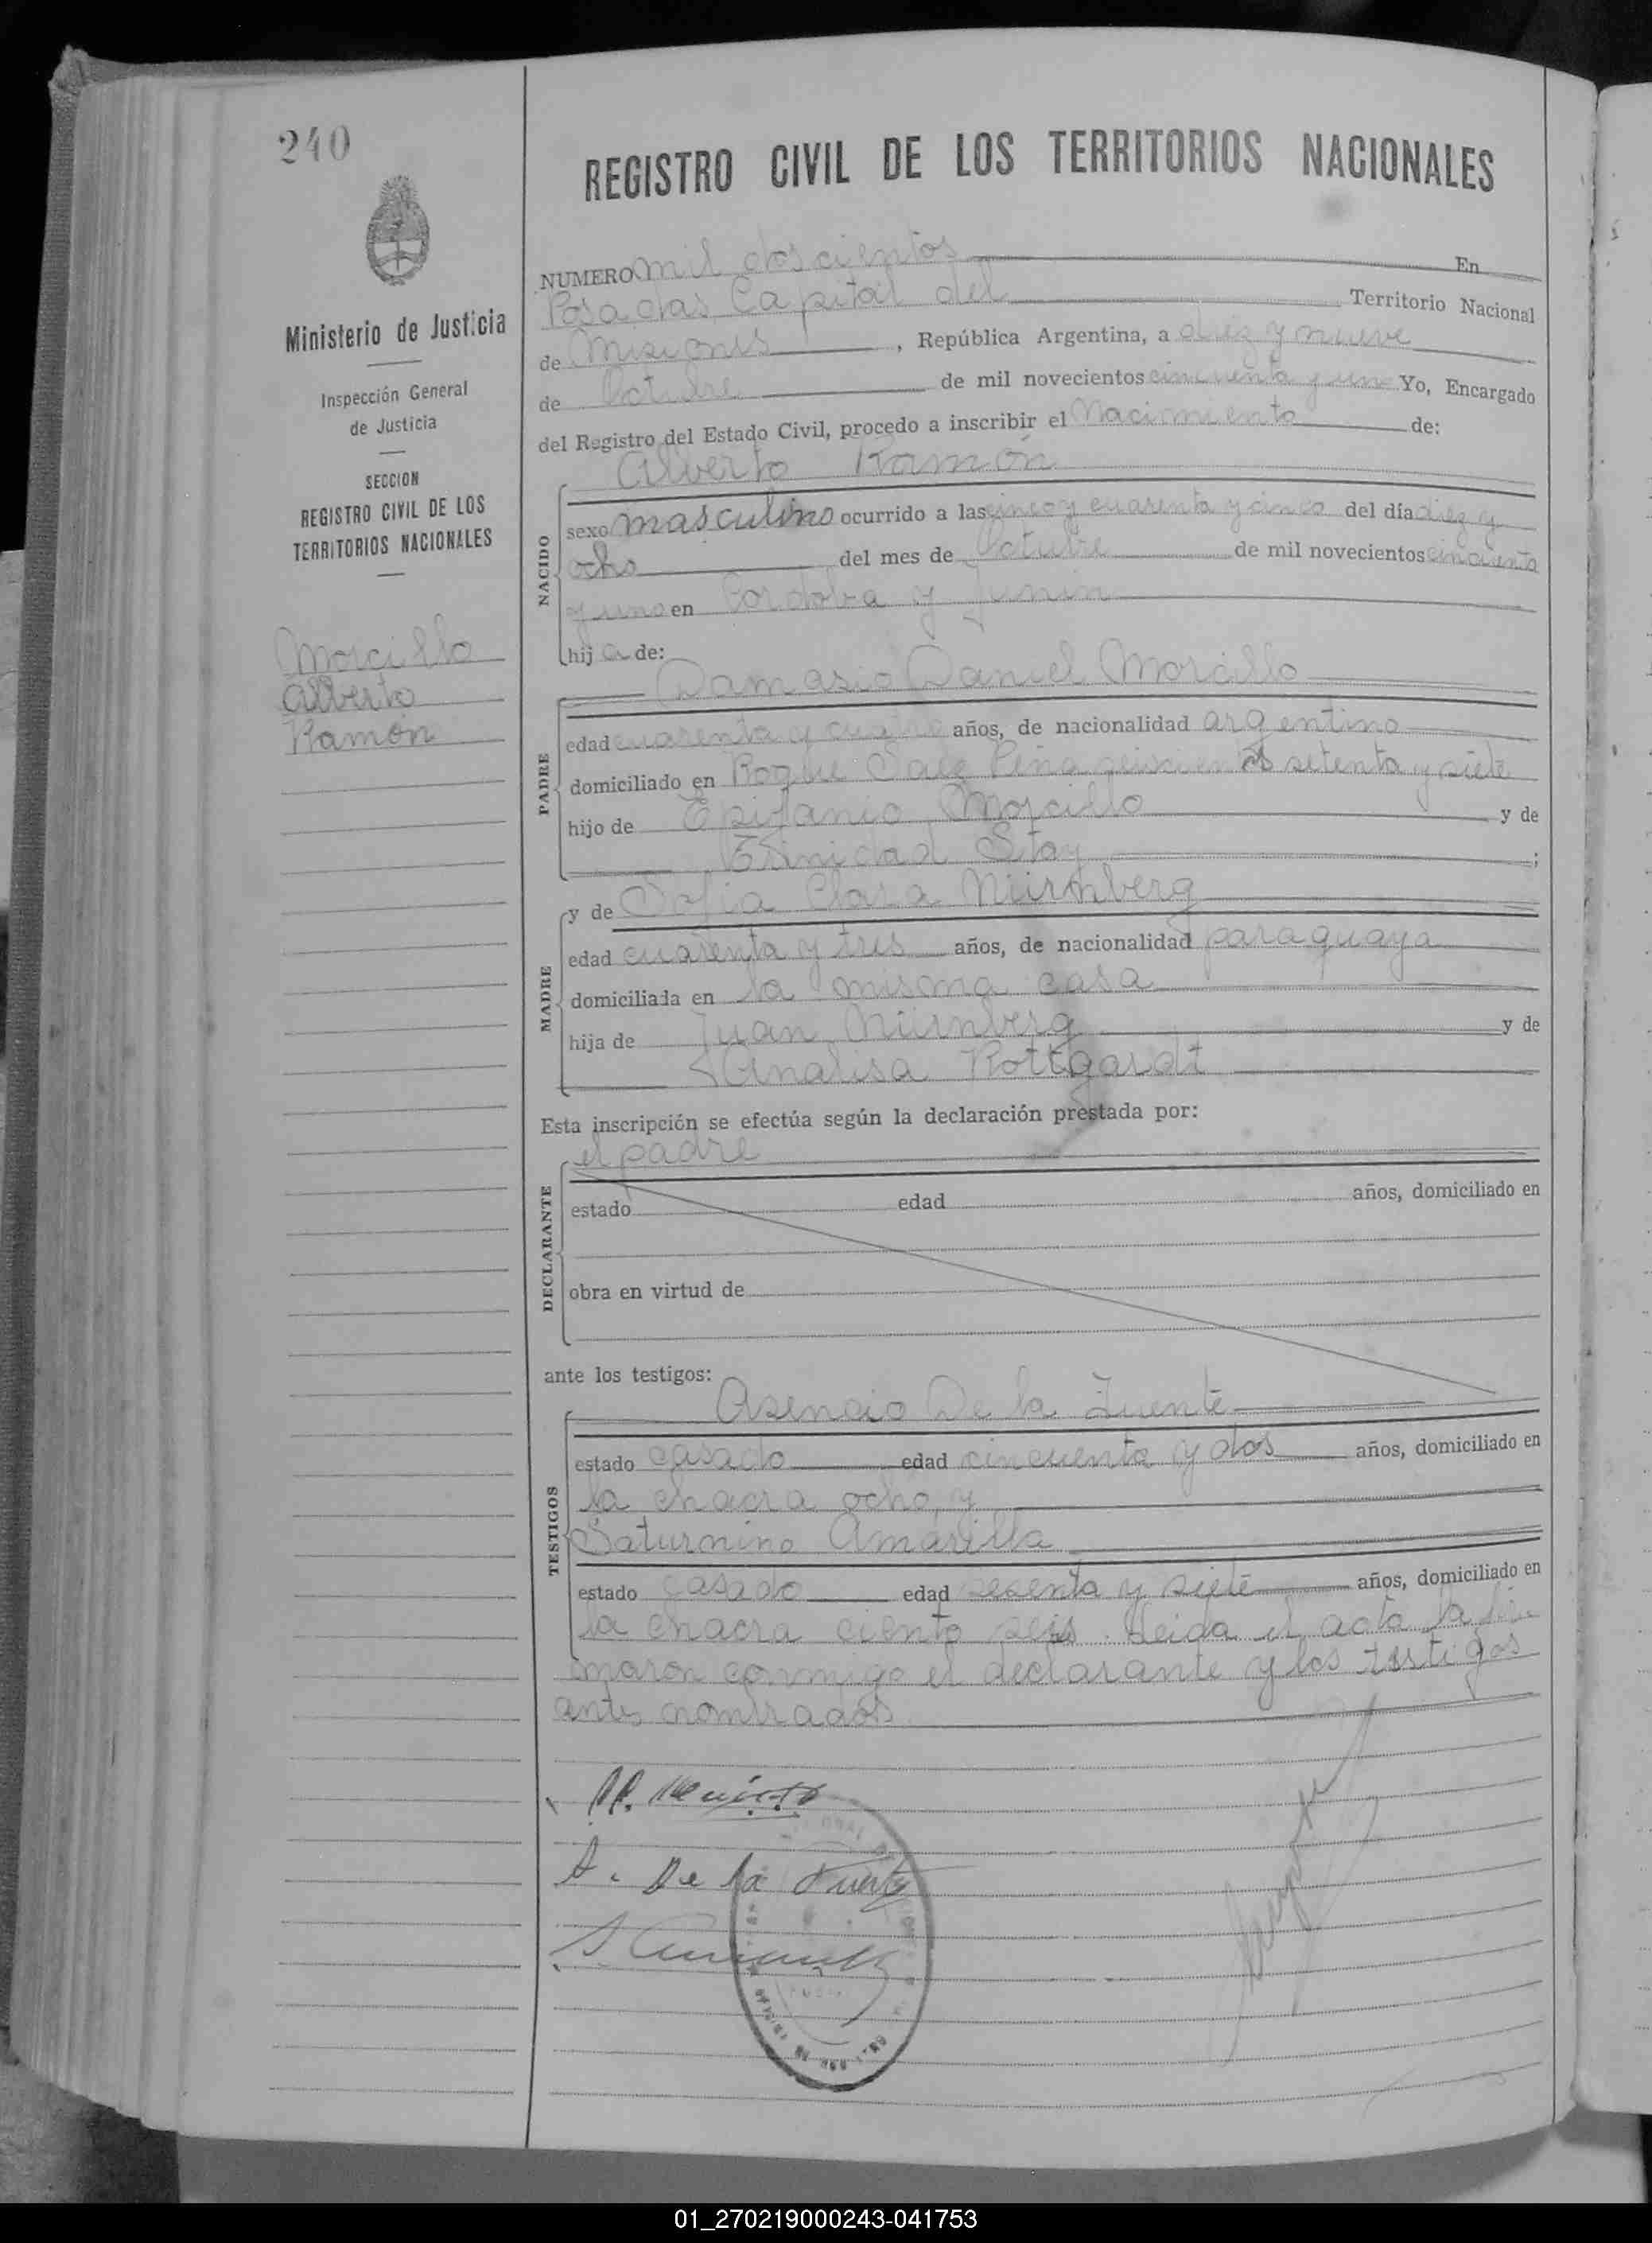 240
REGISTRO CIVIL DE LOS TERRITORIOS NACIONALES
Ministerio de Justicia
Inspección General
de Justicia
SECCION
REGISTRO CIVIL DE LOS
TERRITORIOS NACIONALES
Morcillo
Alberto
Ramón
NUMERO mil doscientos En
Posadas Capital del Territorio Nacional
de Misiones, República Argentina, a diez y nueve
de Octubre de mil novecientos cincuenta y uno Yo, Encargado
del Registro del Estado Civil, procedo a inscribir el Nacimiento de:
Alberto Ramón
NACIDO
sexo masculino ocurrido a las cinco y cuarenta y cinco del día diez y
ocho del mes de Octubre de mil novecientos cincuenta
y uno en Cordoba y Junin
hij o de:
Damasio Daniel Morcillo
PADRE
edad cuarenta y cuatro años, de nacionalidad argentino
domiciliado en Roque Saez Peña seiscientos setenta y siete
hijo de Epifanio Morcillo y de
Trinidad ;
y de Sofia Clara Nürnberg
MADRE
edad cuarenta y tres años, de nacionalidad paraguaya
domiciliada en la misma casa
hija de Juan Nürnberg y de
Analisa Rottgardt
Esta inscripción se efectúa según la declaración prestada por:
el padre
DECLARANTE
estado edad años, domiciliado en
obra en virtud de
ante los testigos:
Asencio De la Fuente
TESTIGOS
estado casado edad cincuenta y dos años, domiciliado en
la chacra ocho y
Saturnino Amarilla
estado casado edad sesenta y siete años, domiciliado en
la chacra ciento seis. Leida el acta la fir
maron conmigo el declarante y los testigos
antes nombrados
A. De la Fuente
01_270219000243-041753